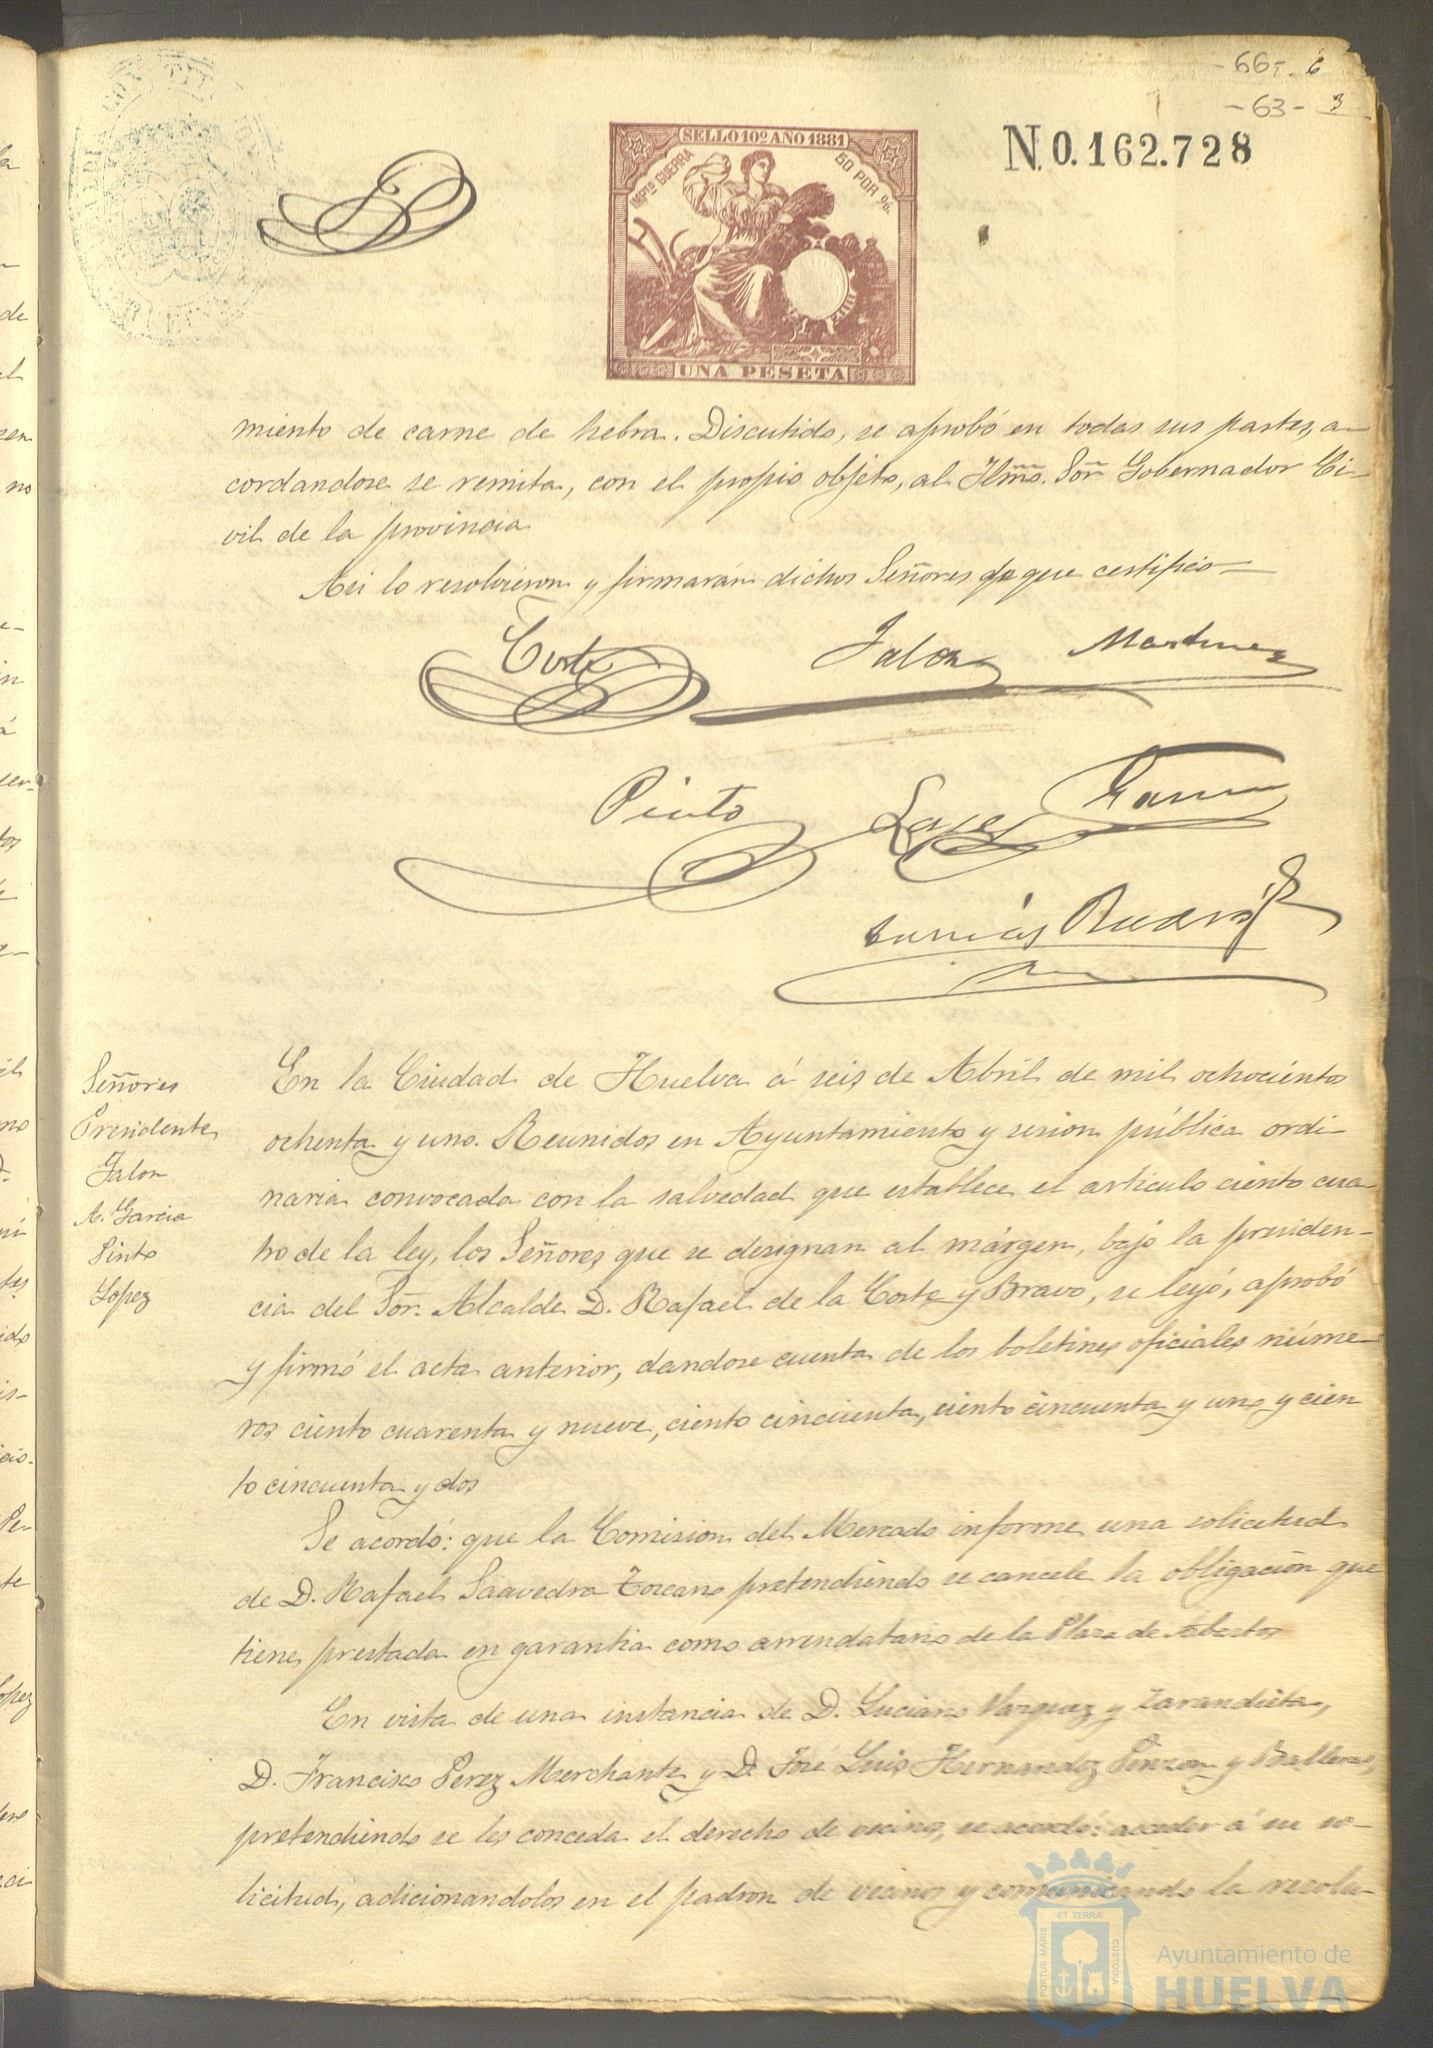 - 66 - 6
- 63 - 3
N. 0.162.728
SELLO 10º AÑO 1881
IMPTO GUERRA
50 POR %.
UNA PESETA
miento de carne de hebra. Discutido, se aprobó en todas sus partes, a-
cordandose se remita, con el propio objeto, al Ilmo. Sor. Gobernador Ci-
vil de la provincia
Asi lo resolvieron y firmarán dichos Señores de que certifico=
Corte Jalon Martinez
Pinto Lopez Garcia
Señores
Presidente
Jalon
A. Garcia
Pinto
Lopez
En la Ciudad de Huelva á seis de Abril de mil ochocientos
ochenta y uno. Reunidos en Ayuntamiento y sesion pública ordi-
naria convocada con la salvedad que establece el articulo ciento cua-
tro de la ley, los Señores que se designan al márgen, bajo la presiden-
cia del Sor. Alcalde D. Rafael de la Corte y Bravo, se leyó, aprobó
y firmó el acta anterior, dandose cuenta de los boletines oficiales núme-
ros ciento cuarenta y nueve, ciento cincuenta, ciento cincuenta y uno y cien
to cincuenta y dos
Se acordó: que la Comision del Mercado informe una solicitud
de D. Rafael Saavedra Toscano pretendiendo se cancele la obligación que
tiene prestada en garantia como arrendatario de la Plaza de Abastos
En vista de una instancia de D. Luciano Vazquez y Zarandieta,
D. Francisco Perez Merchante y D. José Luis Hernandez Pinzon y Ballester,
pretendiendo se les conceda el derecho de vecinos, se acordó: acceder á su so-
licitud, adicionandolos en el padron de vecinos y comunicando la resolu-
PORTUS MARIS
ET TERRA
CUSTODIA
Ayuntamiento de
HUELVA